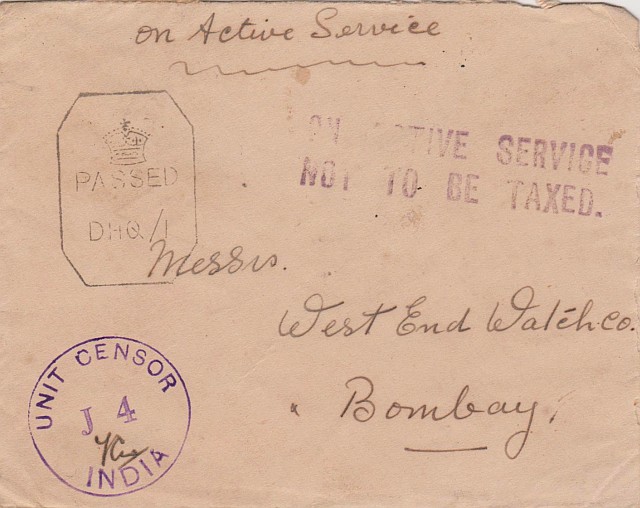 on Active Service
ON ACTIVE SERVICE
NOT TO BE TAXED.
PASSED
DHQ/1
Messrs.
West End Watch Co.
Bombay.
UNIT CENSOR
J 4
INDIA